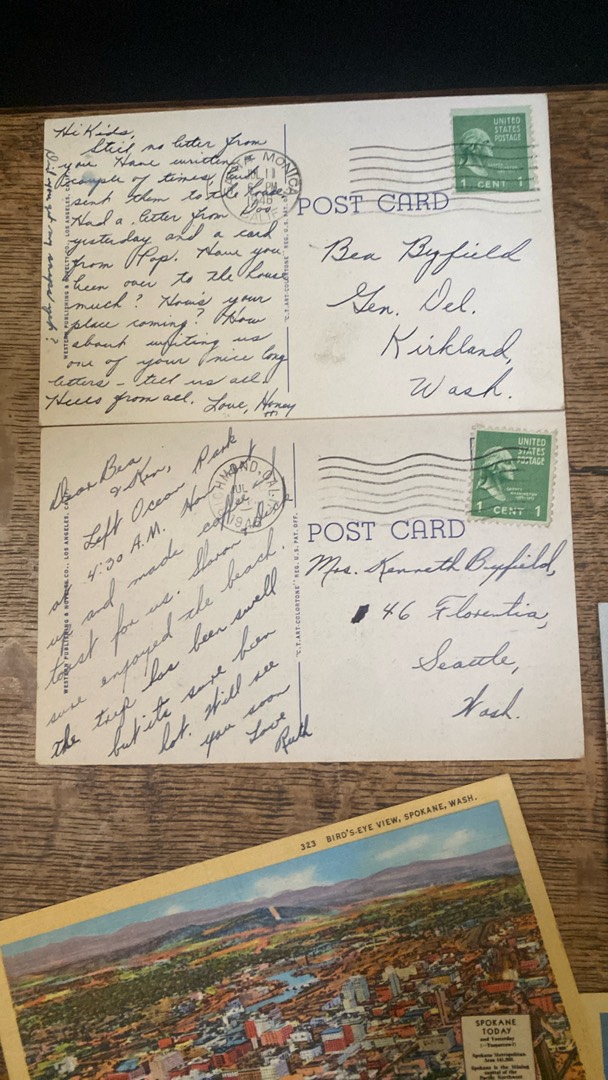 Hi Kids,
Still no letter from
you. Have written a
couple of times, but
sent them to the house.
Had a letter from
yesterday and a card
from Pop. Have you
been over to the house
much? How's your
place coming? How
about writing us
one of your nice long
letters – tell us all.
from all. Love, Honey
WESTERN PUBLISHING & NOVELTY CO., LOS ANGELES, CAL.
"C.T. ART-COLORTONE" REG. U.S. PAT. OFF.
SANTA MONICA
JUL 11
1946
CALIF
POST CARD
UNITED
STATES
POSTAGE
1 CENT 1
Bea Byfield
Gen. Del.
Kirkland,
Wash.
Dear Bea
& Ken,
Left Ocean Park
at 4:30 A.M. Honey got
up and made coffee and
toast for us. Sharon & Dick
sure enjoyed the beach.
the trip has been swell
but it's sure been
hot. Will see
you soon
Love
Ruth
WESTERN PUBLISHING & NOVELTY CO., LOS ANGELES, CAL.
"C.T. ART-COLORTONE" REG. U.S. PAT. OFF.
JUL
POST CARD
UNITED
STATES
POSTAGE
1 CENT 1
Mrs. Kenneth Byfield,
46 Florentia,
Seattle,
Wash.
323 BIRD'S-EYE VIEW, SPOKANE, WASH.
SPOKANE
TODAY
and Yesterday
(—Tomorrow!)
Spokane Metropolitan
Area 141,000.
Spokane is the